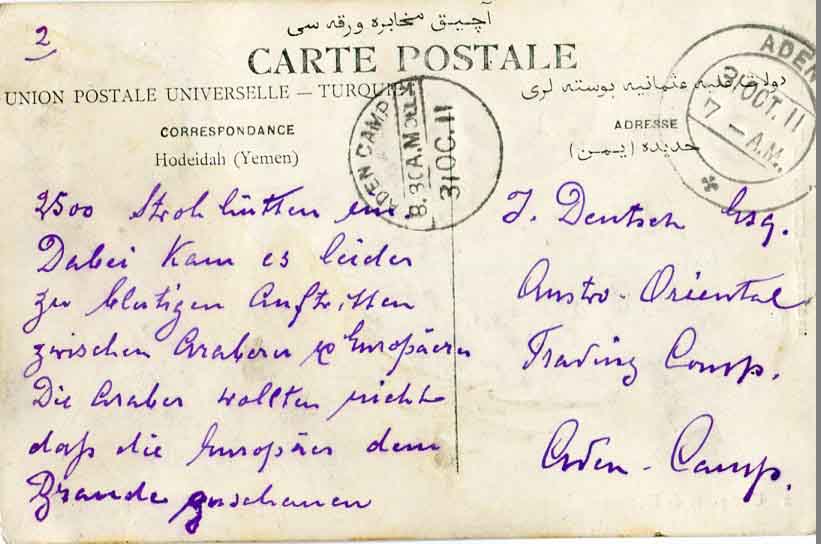 2
آچیق مخابره ورقه سی
CARTE POSTALE
UNION POSTALE UNIVERSELLE — TURQUIE
دولت علیه عثمانیه پوسته لری
CORRESPONDANCE
Hodeidah (Yemen)
ADRESSE
حدیده (یمن)
ADEN CAMP
8.30A.M
31OC.11
ADEN
31OCT.11
7 – A.M.
2500 Strohhütten ein.
Dabei kam es leider
zu blutigen Auftritten
zwischen Arabern & Europäern
Die Araber wollten nicht
daß die Europäer dem
Brande zuschauen
J. Deutsch Esq.
Austro-Oriental
Trading Comp.
Aden-Camp.